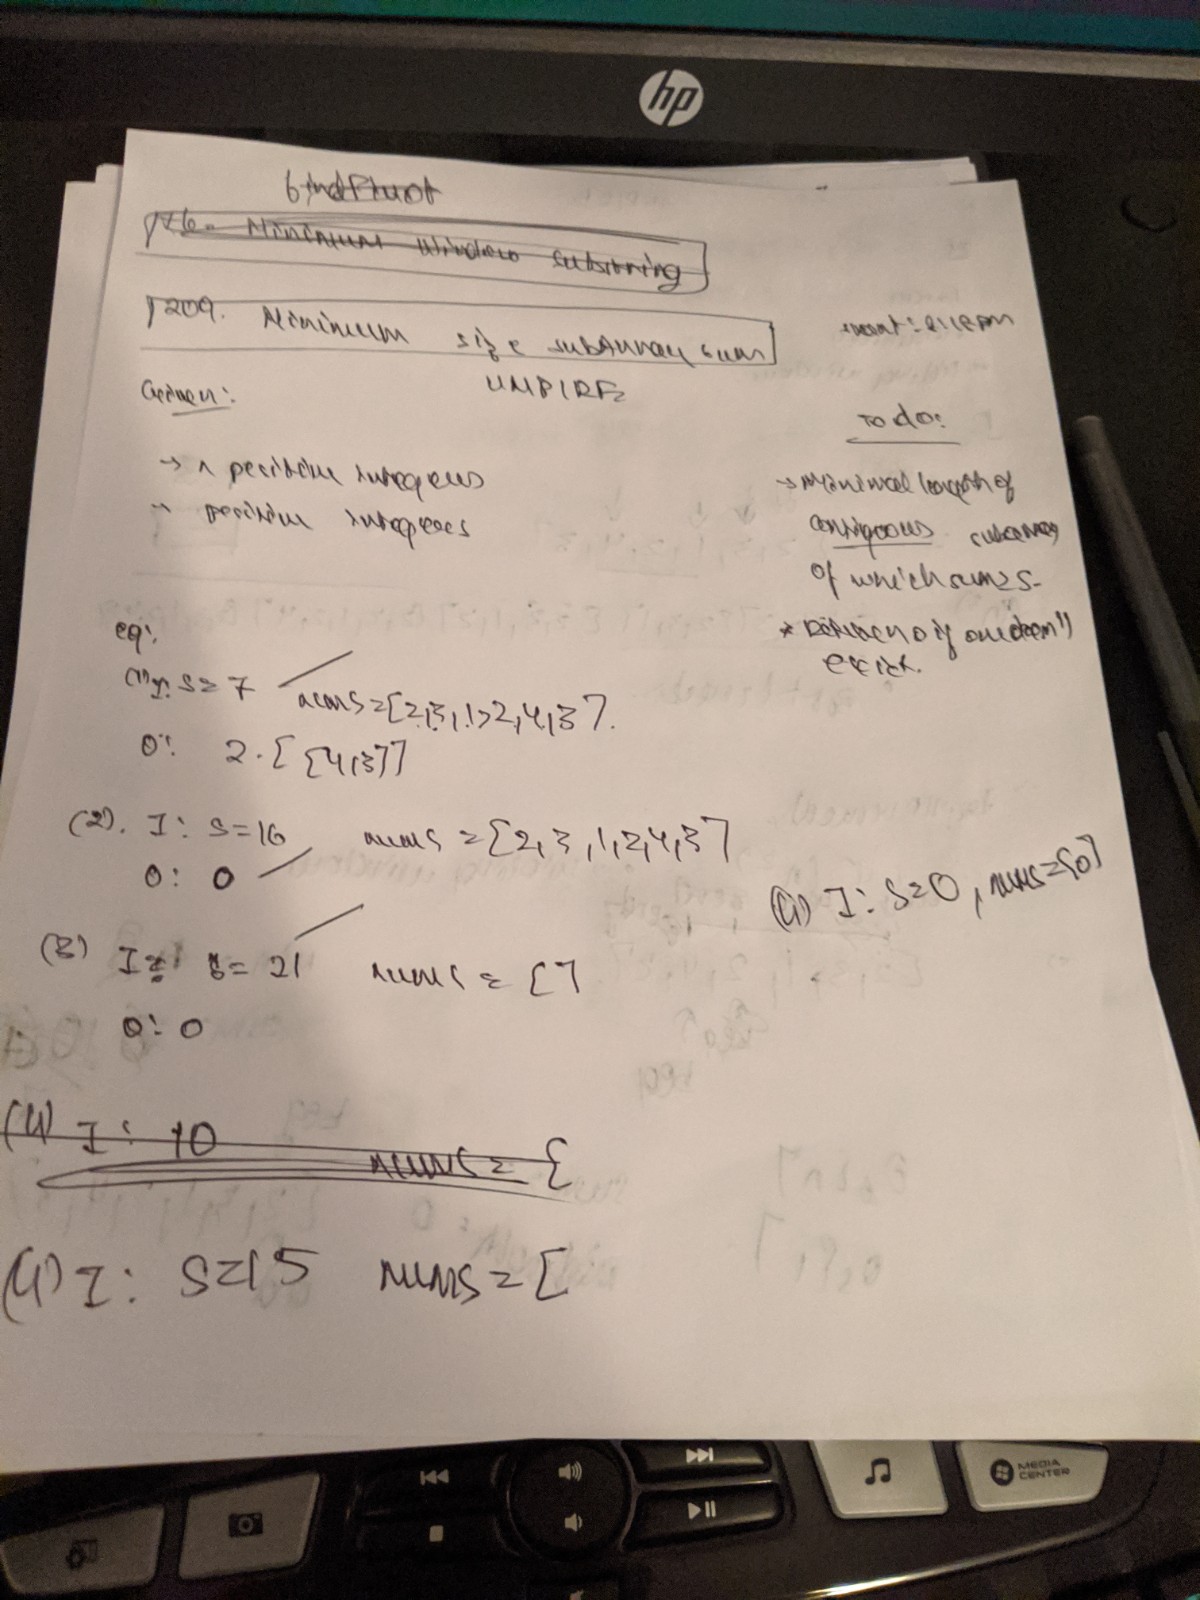 hp
76. Minimum Window Substring
209. Minimum size subarray sum
UMPIRE
Given:
To do:
→ n positive integers
→ positive integers
→ Minimal length of
contiguous subarray
of which sum ≥ S.
* Return 0 if one doesn't
exist.
eg:
(1) I: S = 7 nums = [2,3,1,2,4,3].
O: 2. [[4,3]]
(2). I: S = 16 nums = [2,3,1,2,4,3]
O: 0
(4) I: S=0, nums=[0]
(3) I: S = 21 nums = []
O: 0
(4) I: 10 nums = [
(4) I: S=15 nums = [
MEDIA
CENTER